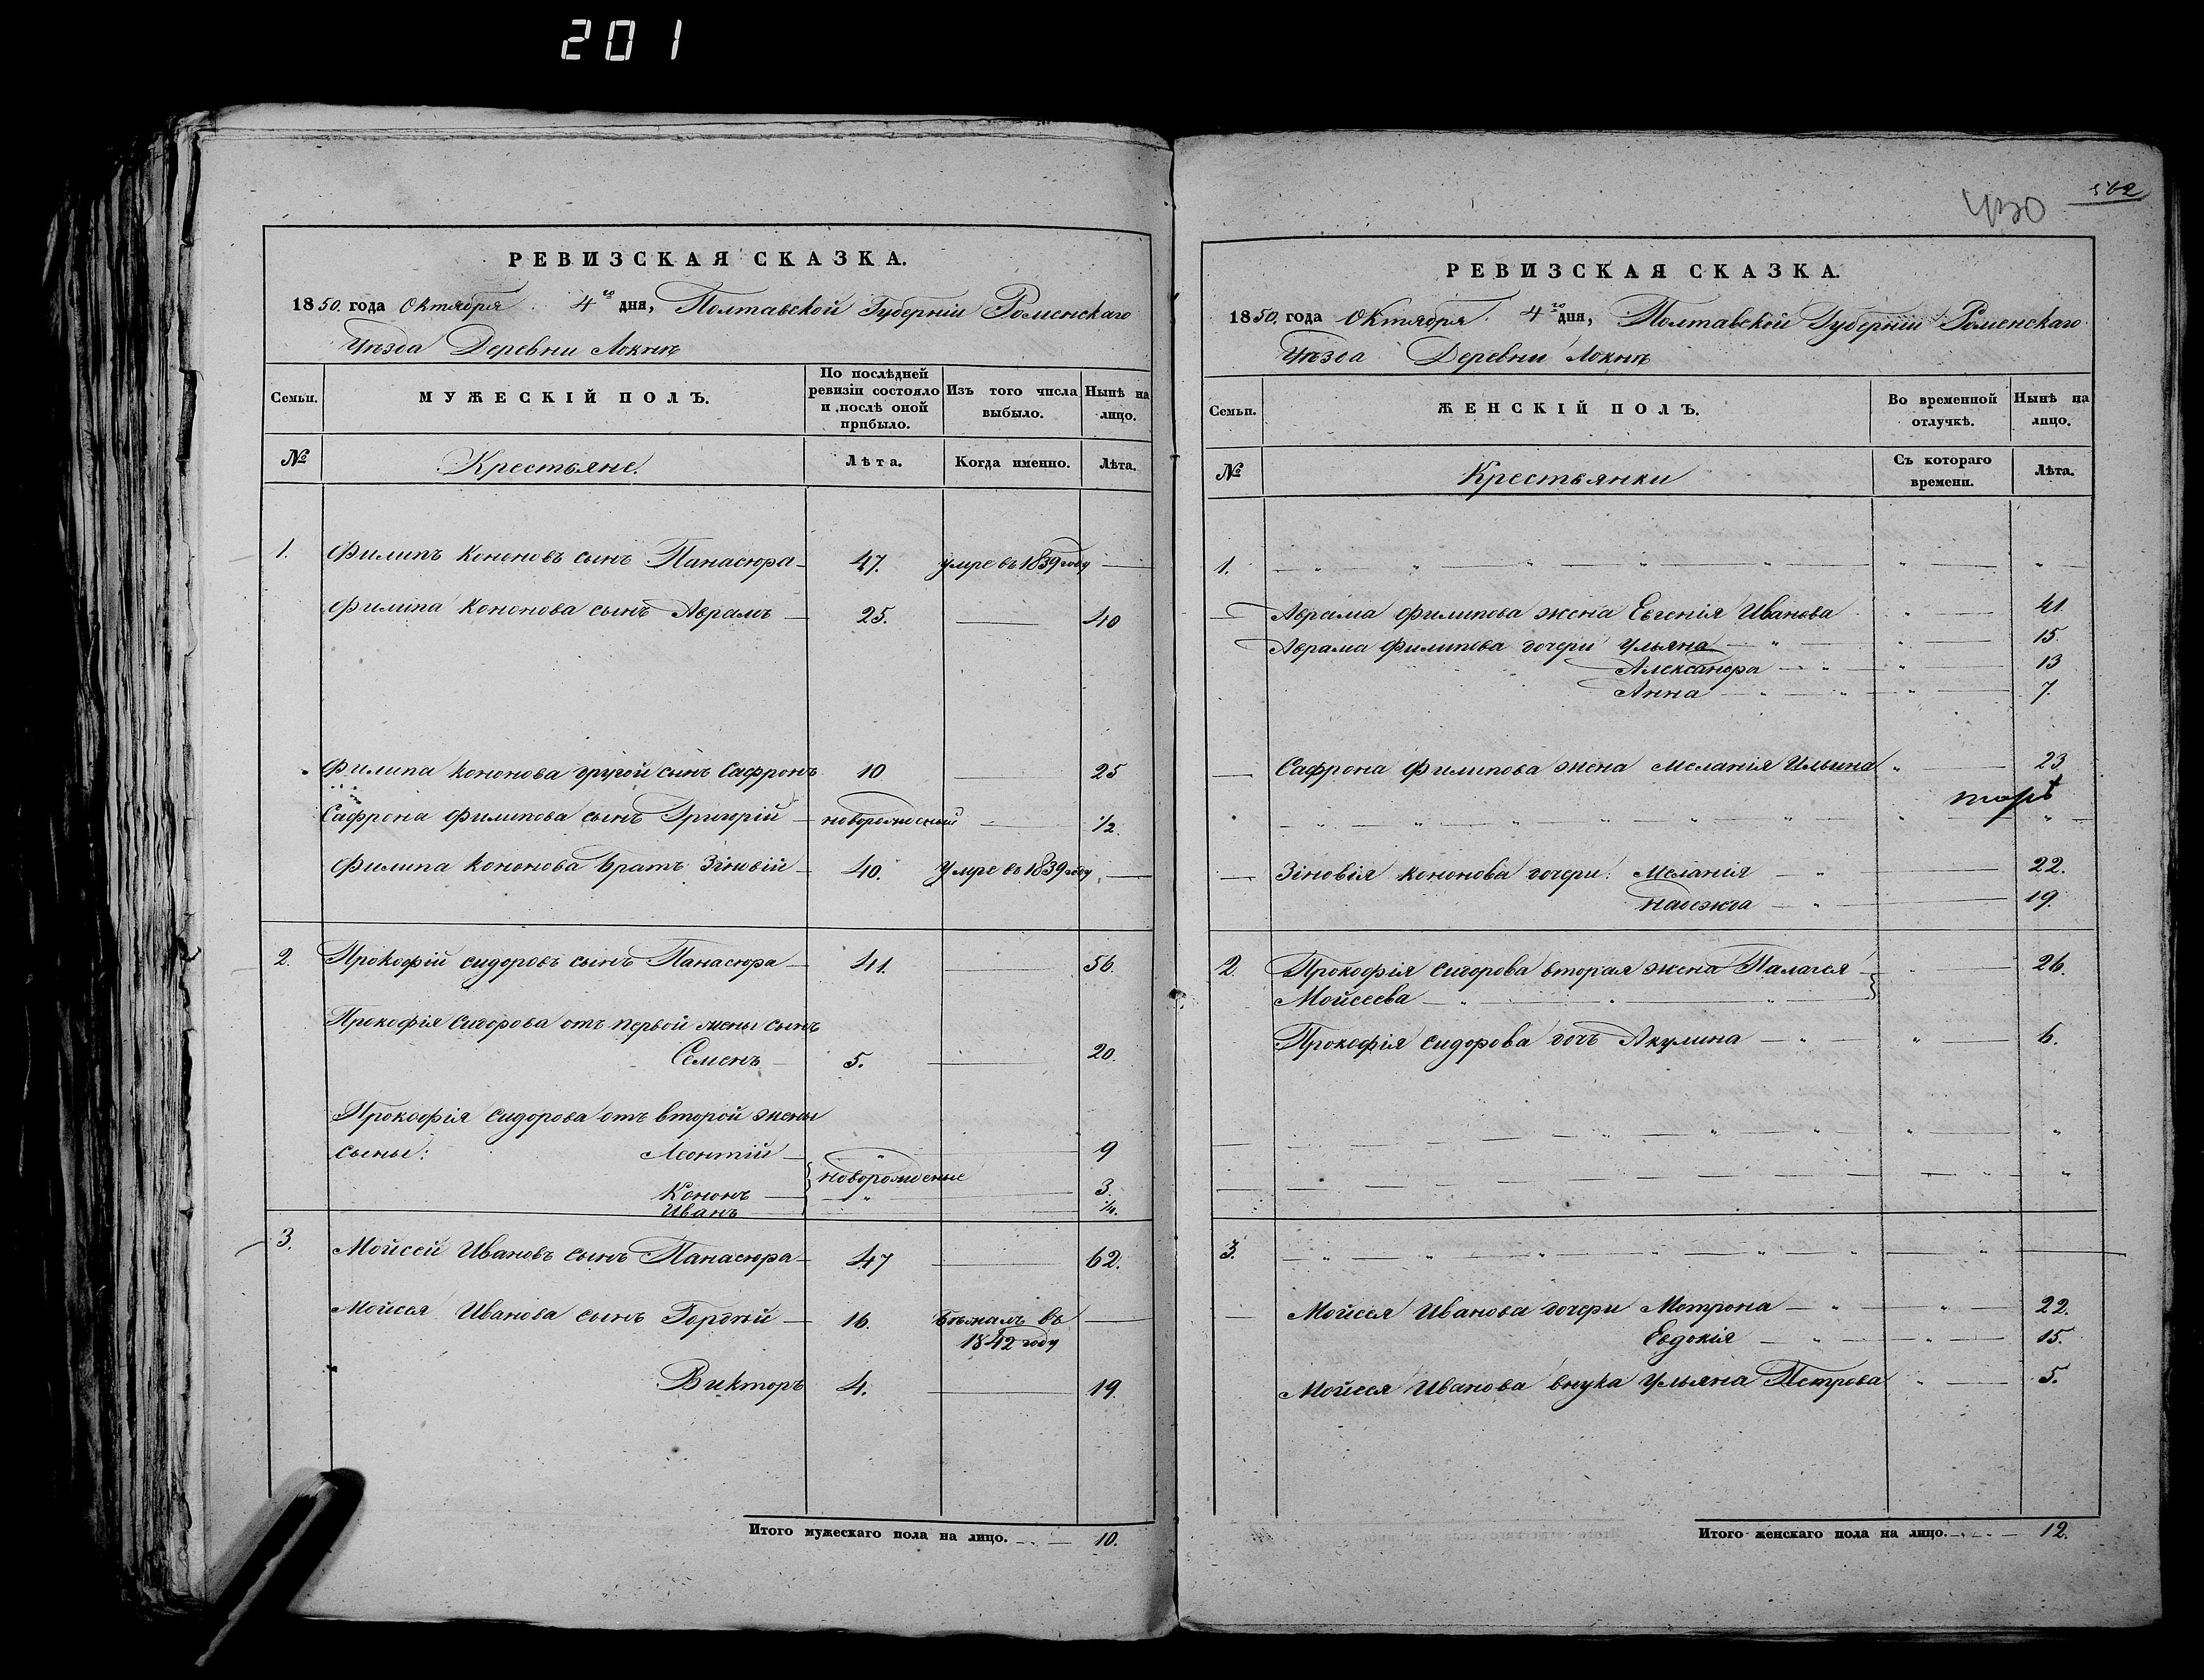 201
РЕВИЗСКАЯ СКАЗКА.
1850. года Октября 4го дня, Полтавской Губерніи Роменскаго
Уѣзда Деревни Локнѣ
Семьи.
МУЖЕСКІЙ ПОЛЪ.
По послѣдней ревизіи состояло и послѣ оной прибыло.
Изъ того числа выбыло.
Нынѣ на лицо.
№ Крестьяне. Лѣта. Когда именно. Лѣта.
1. Филипъ Кононовъ сынъ Панасюра 47. умре въ 1839 году —
Филипа Кононова сынъ Аврамъ — 25. — 40
Филипа Кононова другой сынъ Сафронъ 10 — 25
Сафрона Филипова сынъ Григорій — новорожденый — 1/2.
Филипа Кононова братъ Зіновій — 40. Умре въ 1839 году —
2. Прокофій Сидоровъ сынъ Панасюра — 41. — 56.
Прокофія Сидорова отъ первой жены сынъ
Семенъ — 5. — 20.
Прокофія Сидорова отъ второй жены
сыны: Леонтій — " — 9
новорожденые
Кононъ — " — 3.
Иванъ — 1/4.
3. Мойсей Ивановъ сынъ Панасюра — 47 — 62.
Мойсея Иванова сынъ Гордѣй — 16. Бѣжалъ въ —
1842 году
Викторъ 4. — 19.
Итого мужескаго пола на лицо. — 10.
430
562
РЕВИЗСКАЯ СКАЗКА.
1850. года Октября 4го дня, Полтавской Губерніи Роменскаго
Уѣзда Деревни Локнѣ
Семьи.
ЖЕНСКІЙ ПОЛЪ.
Во временной отлучкѣ.
Нынѣ на лицо.
№ Крестьянки Съ котораго времени. Лѣта.
1. — " — " — " — " — " — " — " —
— Аврама Филипова жена Евгенія Иванова " — 41.
Аврама Филипова дочери Ульяна — " — " — 15.
Александра — " — " — 13
Анна — " — " — " — 7.
— Сафрона Филипова жена Меланія Ильина " — 23
— " — " — " — " — " — " — " — " —
— Зіновія Кононова дочери: Меланія — " — 22.
Надежда — " — 19.
2. Прокофія Сидорова вторая жена Палагея — " — 26.
Мойсеева — " — " — "
Прокофія Сидорова дочь Акулина — " — " — 6.
— " — " — " — " — " — "
— " — " — " — " — " — "
3. — " — " — " — " — " — " — " —
— Мойсея Иванова дочери Мотрона — " — " — 22.
Евдокія — " — " — 15.
Мойсея Иванова внука Ульяна Петрова " — 5.
Итого женскаго пола на лицо. — 12.